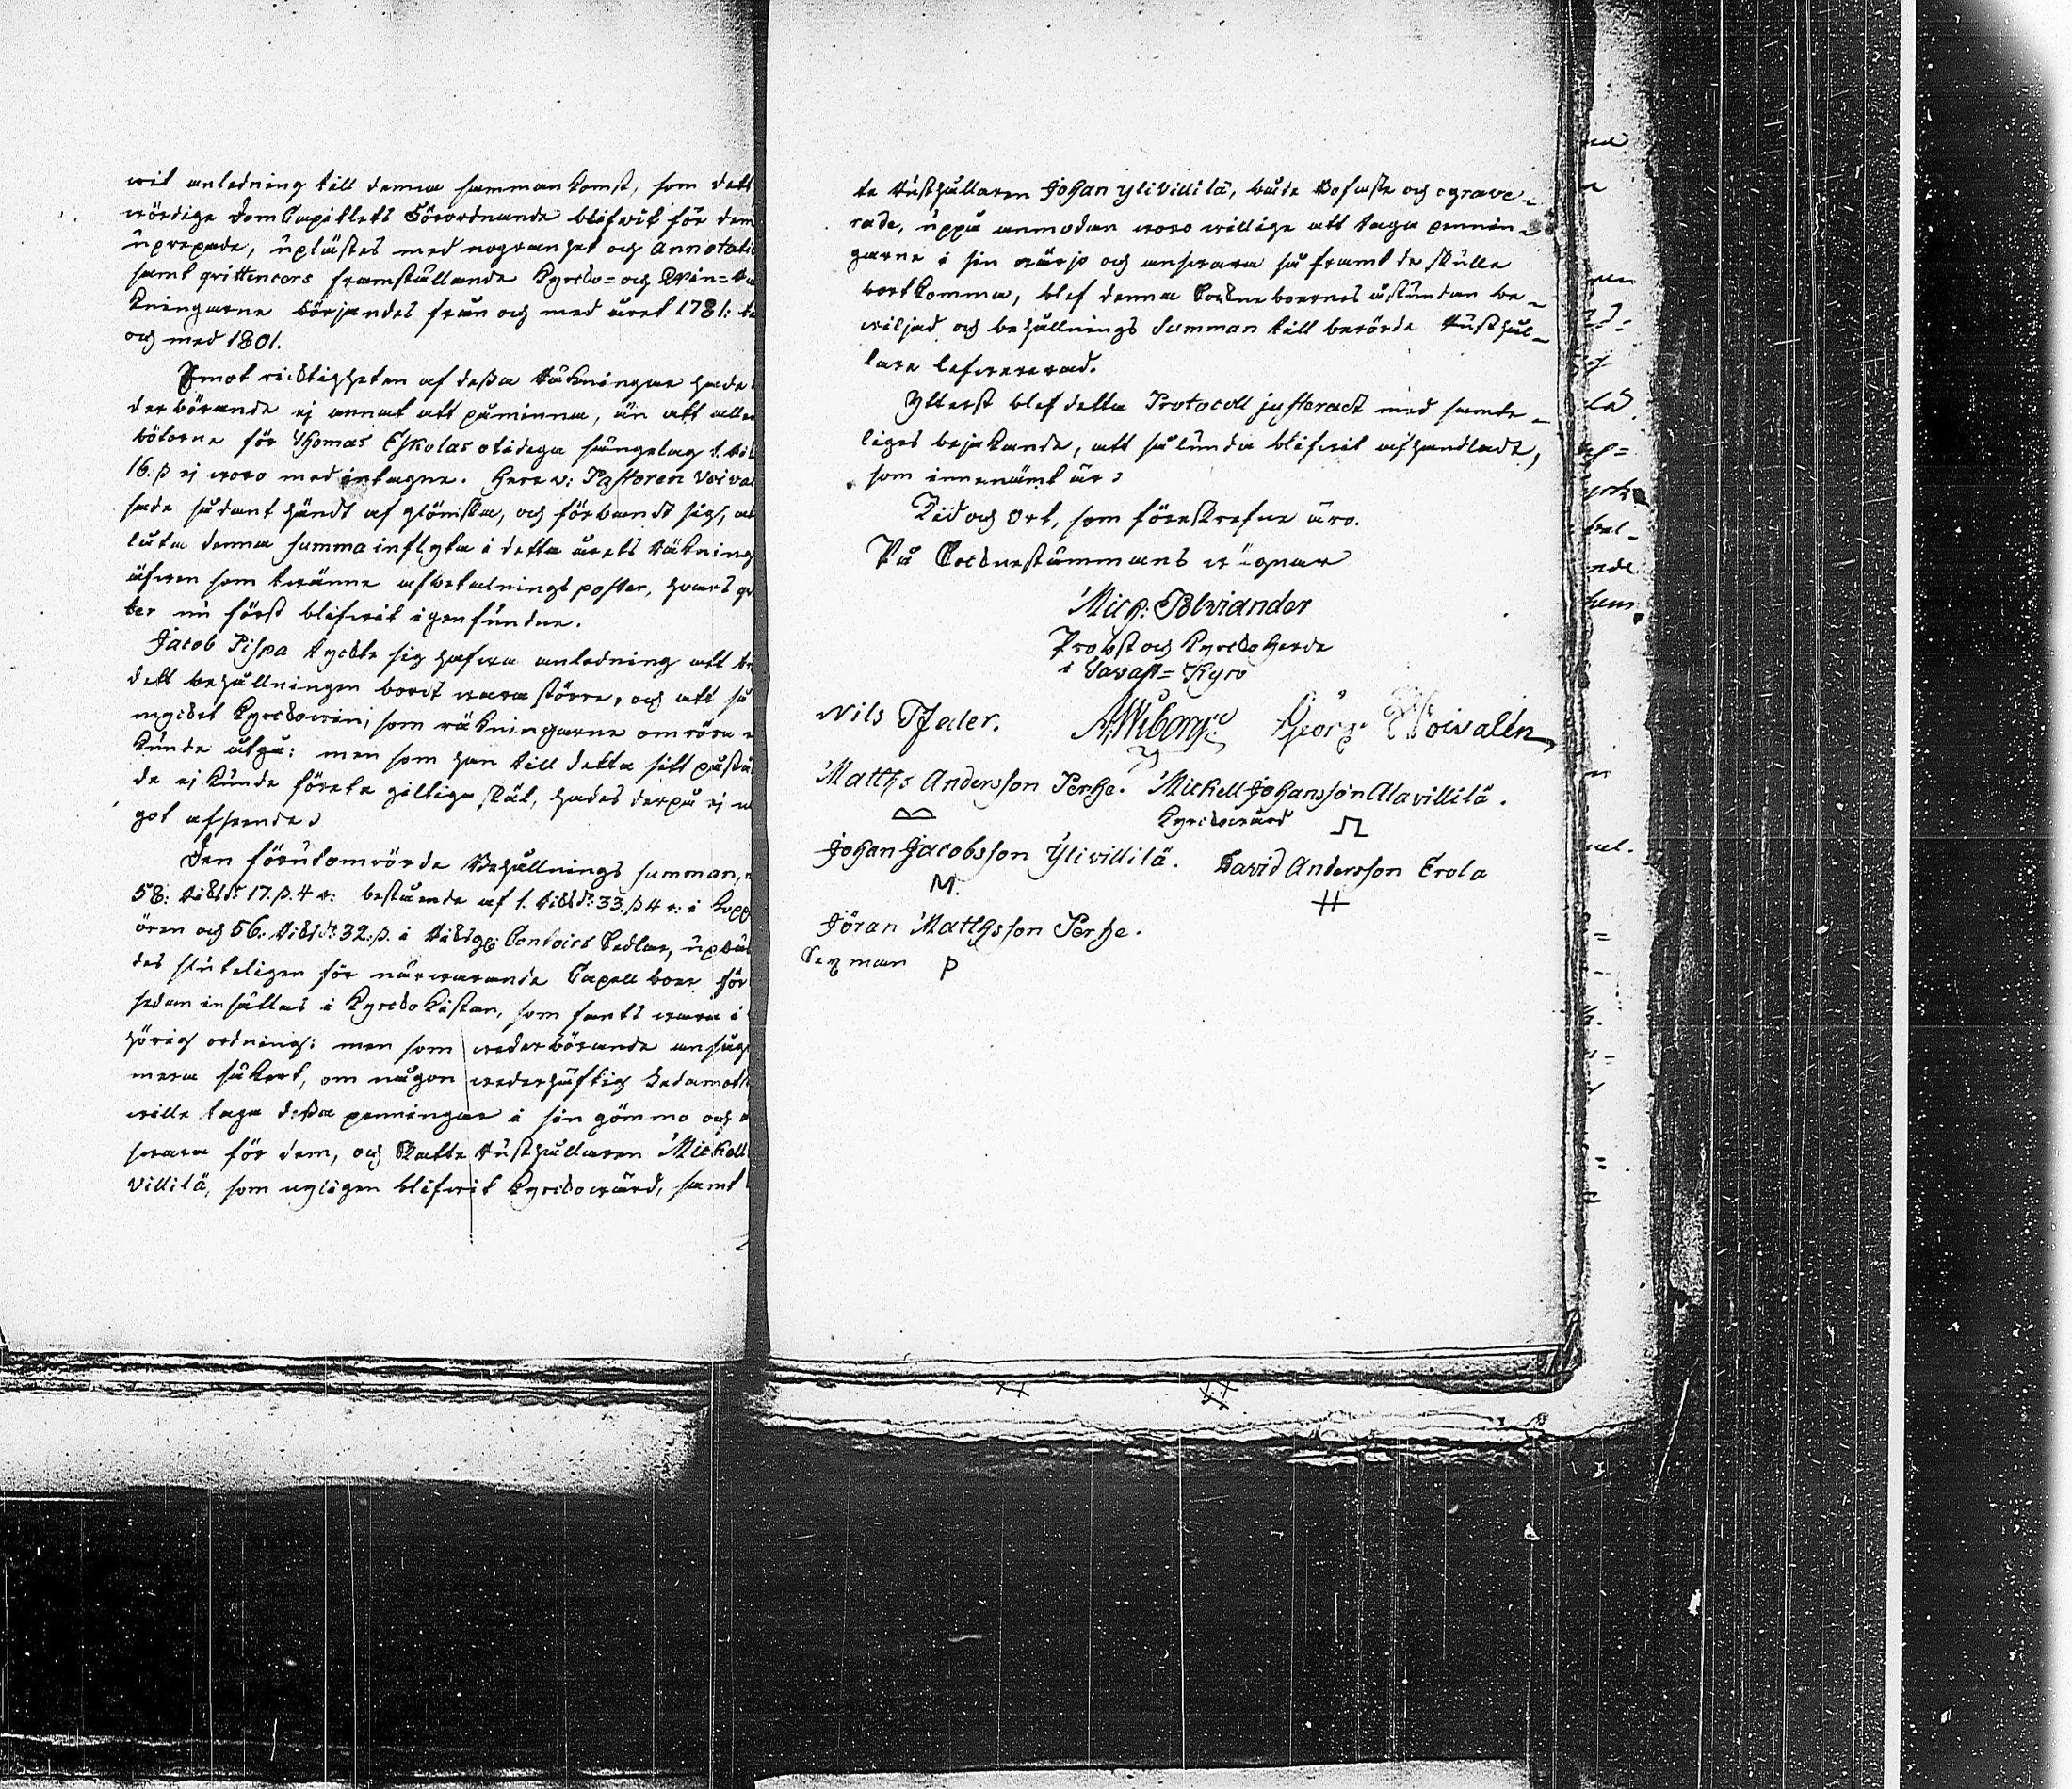 wit anledning till denna sammankomst, som dett
wördige DomCapitlets Förordnande blifwit för dem
uprepade, uplästes med nogranhet och Annotati
samt qvittencers framställande Kyrcko= och Win=Rä
kningarne börjandes från och med året 1781: t
och med 1801.
Emot ricktigheten af dessa Räkningar hade
derbörande ej annat att påminna, än att alle
böterne för Thomas Eskolas otidiga sängelag 1. Rd
16. ß ej woro med intagne. Herr v: Pastoren Voival
sade sådant händt af glömska, och förbandt sig, at
låta denna summa inflyta i detta årets Räkning
äfwen som twänne afbetalnings poster, hwars qv
ter nu först blifwit igenfundne.
Jacob Pispa tyckte sig hafwa anledning att tr
dett behållningen bordt wara större, och att så
mycket Kyrckowin, som räkningarne omröra e
kunde åtgå: men som han till detta sitt påstå
de ej kunde förete giltiga skäl, hades derpå ej n
got afseende.
Den förutomrörde Behållnings summan,
58: Rickd:r 17. ß. 4 r: bestående af 1. Rickd:r 33. ß 4 r: i Kopp
ören och 56: Rickd:r 32: ß. i Riksg: Contoirs Sedlar, uptä
des sluteligen för närwarande Capellboer för
sedan insättas i Kyrcko Kistan, som fants wara i
hörig ordning: men som wederbörande ansåg
mera säkert, om någon wederhäftig Ledamot
wille taga dessa penningar i sin gömmo och a
swara för dem, och Rusthållaren Mickell
Villilä, som nyligen blifwit Kyrckowärd, samt
te Rusthållaren Johan Ylivillilä, både Bofaste och ograve-
rade, uppå anmodan woro willige att taga pennin-
garne i sin wärjo och answara så framt de skulle
bortkomma, blef denna Socknеboernes åstundan be-
wiljad och behållnings Summan till berörde Rusthål-
lare lefwererad.
Ytterst blef detta Protocoll justeradt med samte-
liges bejakande, att sålunda blifwit afhandladt,
som innanämt är.
Tid och Ort, som föreskrefne äro.
På Sockneständmans wägnar
Mich: Polviander
Probst och Kyrckoherde
i Tavast=Kyro
Nils Idaler. A. Wiborg. Georg Woivalén
Matths Andersson Perhe. Mickell Johansson Alavillilä.
Kyrckowärd
Johan Jacobsson Ylivillilä. David Andersson Erola
M.
Jöran Matthsson Perhe.
Sexman P